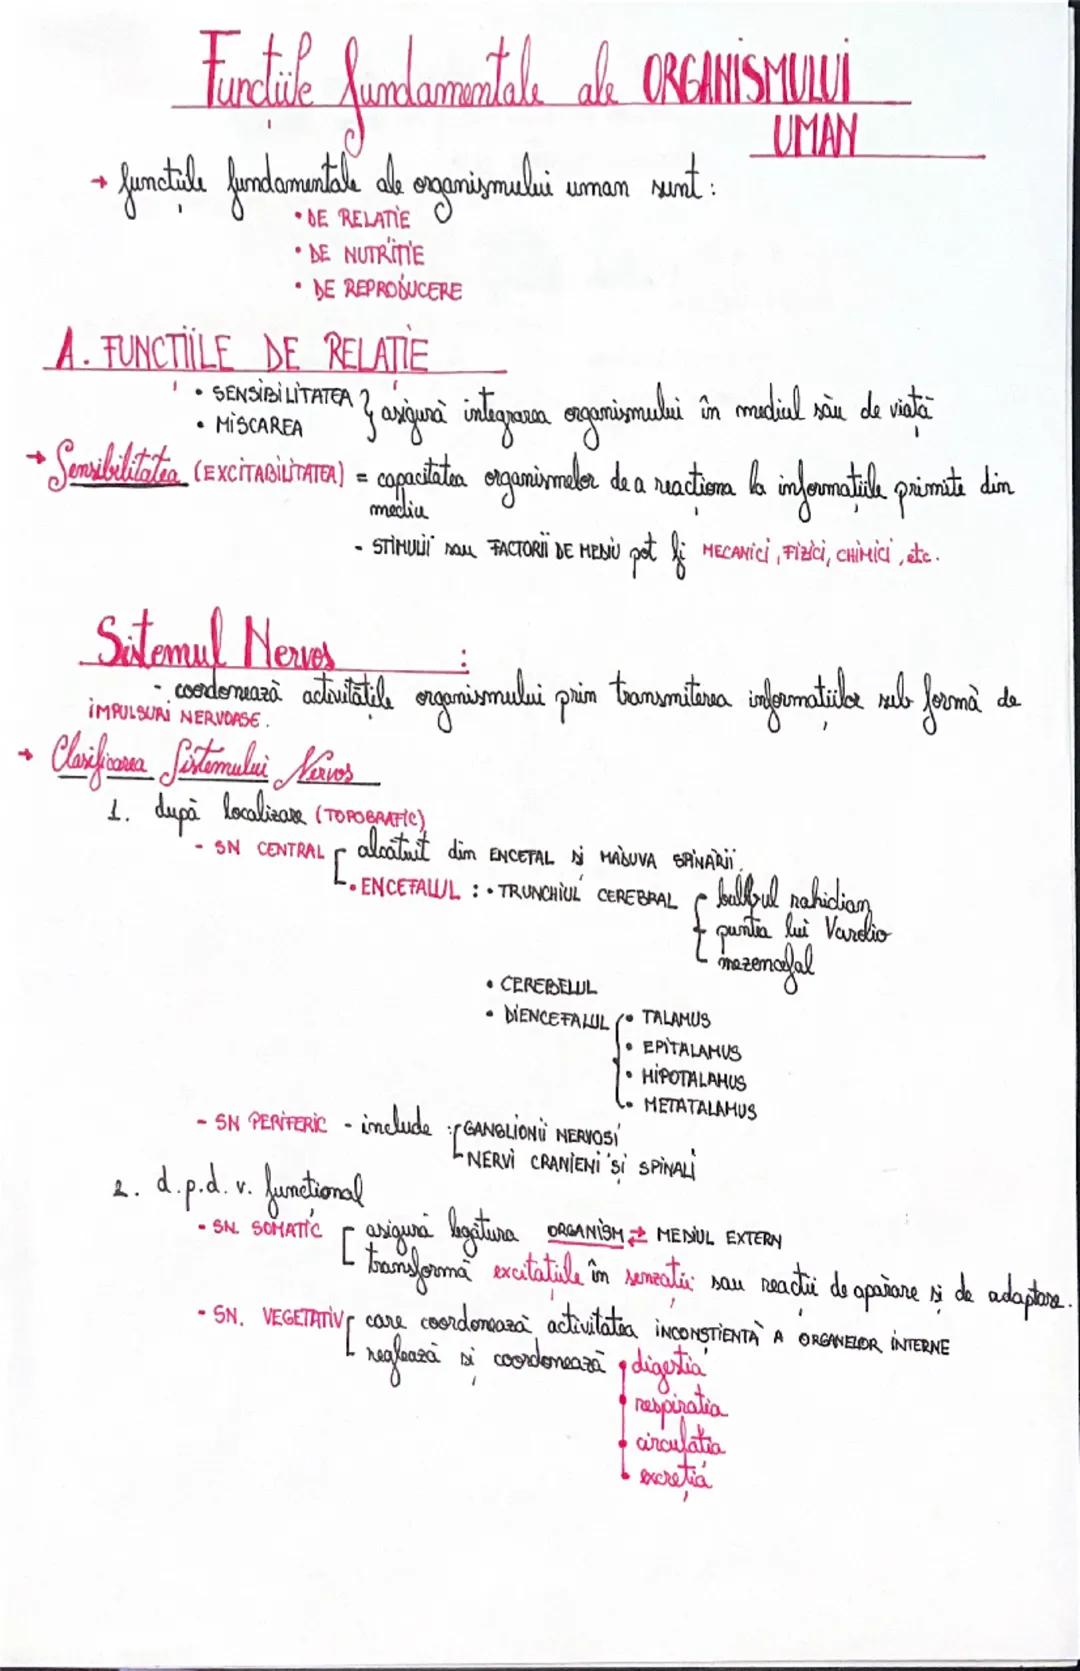 Funcțiile fundamentale ale ORGANISMULUI
UMAN
→ funcțiile fundamentale ale organismului uman sunt:
• DE RELAȚIE
• DE NUTRIȚIE
• DE REPRODUCERE
A. FUNCȚIILE DE RELAȚIE
• SENSIBILITATEA } asigură integrarea organismului în mediul său de viață
• MIȘCAREA
→ Sensibilitatea (EXCITABILITATEA) = capacitatea organismelor de a reacționa la informațiile primite din
mediu
- STIMULII sau FACTORII DE MEDIU pot fi MECANICI, FIZICI, CHIMICI, etc.
Sistemul Nervos :
- coordonează activitățile organismului prin transmiterea informațiilor sub formă de
IMPULSURI NERVOASE.
→ Clasificarea Sistemului Nervos
1. după localizare (TOPOGRAFIC)
- SN CENTRAL alcătuit din ENCEFAL ȘI MĂDUVA SPINĂRII.
• ENCEFALUL : • TRUNCHIUL CEREBRAL bulbul rahidian
puntea lui Varolio
mezencefal
• CEREBELUL
• DIENCEFALUL • TALAMUS
• EPITALAMUS
• HIPOTALAMUS
• METATALAMUS
- SN PERIFERIC - include : GANGLIONII NERVOȘI
NERVI CRANIENI ȘI SPINALI
2. d.p.d.v. funcțional
- SN. SOMATIC asigură legătura ORGANISM ⇄ MEDIUL EXTERN
transformă excitațiile în senzații sau reacții de apărare și de adaptare.
- SN. VEGETATIV care coordonează activitatea INCONȘTIENTĂ A ORGANELOR INTERNE
reglează și coordonează • digestia
• respirația
• circulația
• excreția